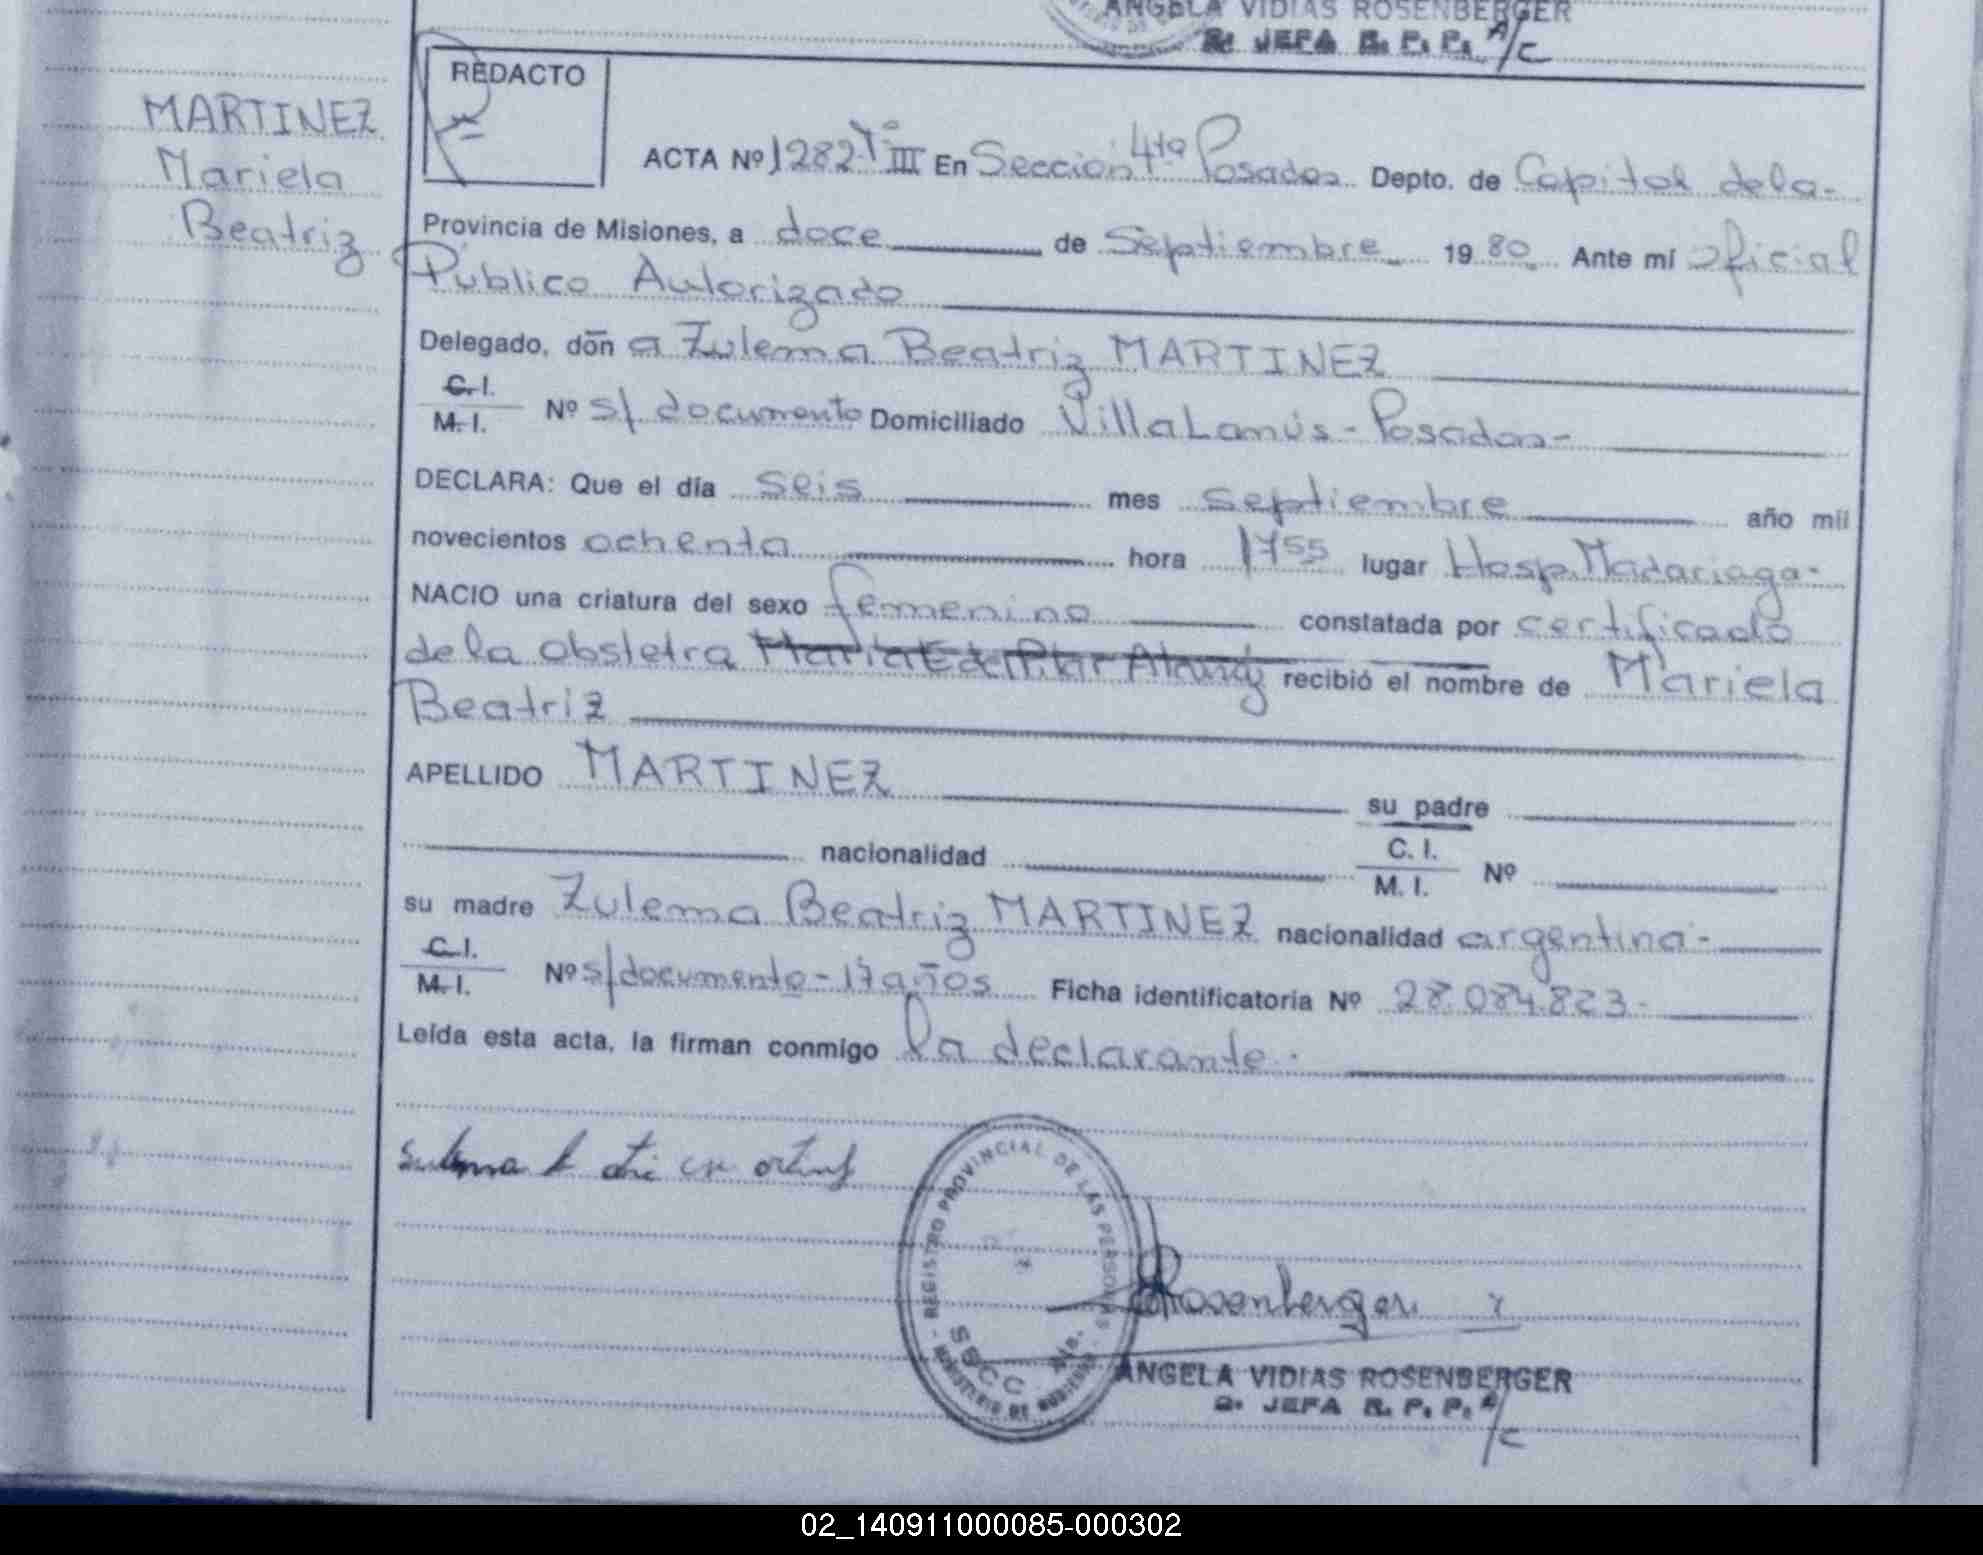 ANGELA VIDIAS ROSENBERGER
2. JEFA R. P. P. A/C
REDACTO
MARTINEZ
Mariela
Beatriz
ACTA Nº 1282 Tº III En Sección 4ta Posadas Depto. de Capital de la-
Provincia de Misiones, a doce de Septiembre 19 80 Ante mí oficial
Público Autorizado
Delegado, don a Zulema Beatriz MARTINEZ
C. I.
M. I. Nº s/ documento Domiciliado Villa Lanús - Posadas-
DECLARA: Que el día seis mes septiembre año mil
novecientos ochenta hora 1755 lugar Hosp. Madariaga-
NACIO una criatura del sexo femenino constatada por certificado
de la obstetra recibió el nombre de Mariela
Beatriz
APELLIDO MARTINEZ su padre
nacionalidad C. I.
M. I. Nº
su madre Zulema Beatriz MARTINEZ nacionalidad argentina-
C. I.
M. I. Nº s/documento - 17 años Ficha identificatoria Nº 28.084.823-
Leída esta acta, la firman conmigo la declarante.
REGISTRO PROVINCIAL DE LAS PERSONAS
Rosenberger
ANGELA VIDIAS ROSENBERGER
2. JEFA R. P. P. A/C
02_140911000085-000302